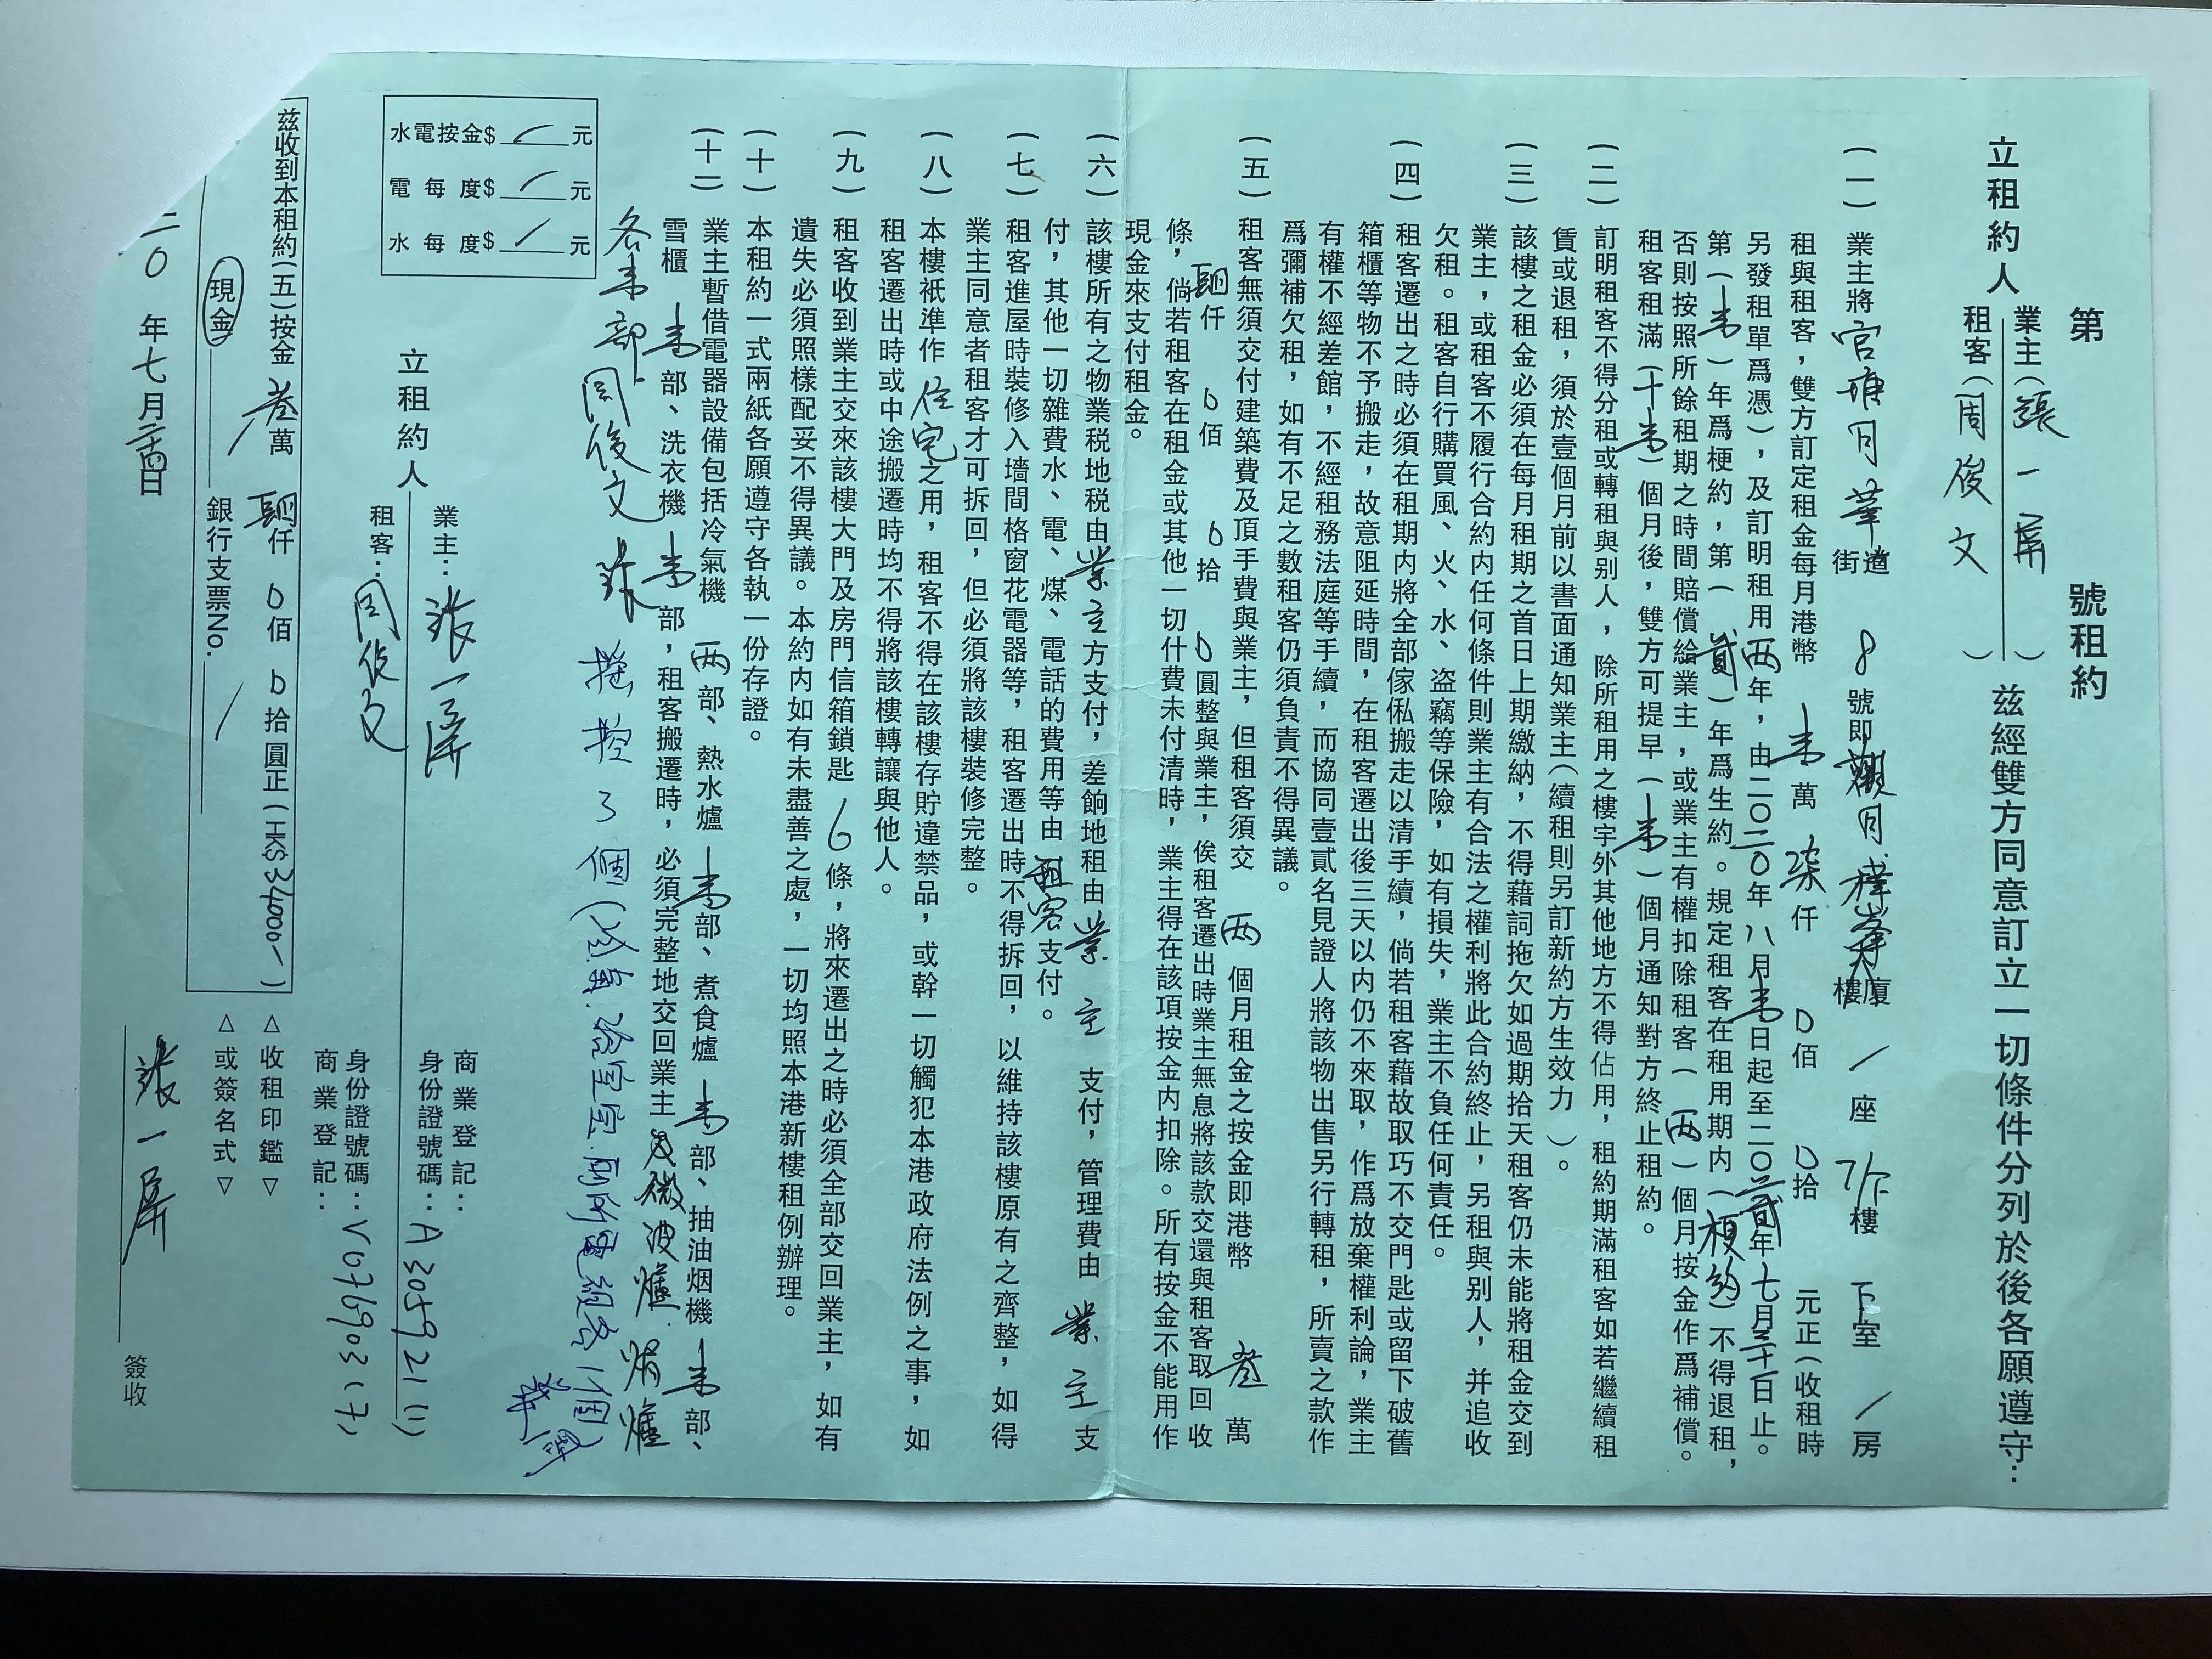 第　　號租約
立租約人
業主（張一屏）
租客（周俊文）
茲經雙方同意訂立一切條件分列於後各願遵守：
（一）業主將官塘月華街道8號即觀月樺峯大樓廈／座7/F樓F室／房
租與租客，雙方訂定租金每月港幣壹萬柒仟0佰0拾元正（收租時
另發租單爲憑），及訂明租用兩年，由二〇二〇年八月壹日起至二〇貳年七月三十一日止。
第（壹）年爲梗約，第（貳）年爲生約。規定租客在租用期內（梗約）不得退租，
否則按照所餘租期之時間賠償給業主，或業主有權扣除租客（兩）個月按金作爲補償。
租客租滿（十壹）個月後，雙方可提早（壹）個月通知對方終止租約。
（二）訂明租客不得分租或轉租與別人，除所租用之樓宇外其他地方不得佔用，租約期滿租客如若繼續租
賃或退租，須於壹個月前以書面通知業主（續租則另訂新約方生效力）。
（三）該樓之租金必須在每月租期之首日上期繳納，不得藉詞拖欠如過期拾天租客仍未能將租金交到
業主，或租客不履行合約內任何條件則業主有合法之權利將此合約終止，另租與別人，并追收
欠租。租客自行購買風、火、水、盜竊等保險，如有損失，業主不負任何責任。
（四）租客遷出之時必須在租期內將全部傢俬搬走以清手續，倘若租客藉故取巧不交門匙或留下破舊
箱櫃等物不予搬走，故意阻延時間，在租客遷出後三天以內仍不來取，作爲放棄權利論，業主
有權不經差館，不經租務法庭等手續，而協同壹貳名見證人將該物出售另行轉租，所賣之款作
爲彌補欠租，如有不足之數租客仍須負責不得異議。
（五）租客無須交付建築費及頂手費與業主，但租客須交兩個月租金之按金即港幣叁萬
肆仟0佰0拾0圓整與業主，俟租客遷出時業主無息將該款交還與租客取回收
條，倘若租客在租金或其他一切什費未付清時，業主得在該項按金內扣除。所有按金不能用作
現金來支付租金。
（六）該樓所有之物業税地税由業主方支付，差餉地租由業主支付，管理費由業主支
付，其他一切雜費水、電、煤、電話的費用等由租客支付。
（七）租客進屋時裝修入墻間格窗花電器等，租客遷出時不得拆回，以維持該樓原有之齊整，如得
業主同意者租客才可拆回，但必須將該樓裝修完整。
（八）本樓衹準作住宅之用，租客不得在該樓存貯違禁品，或幹一切觸犯本港政府法例之事，如
租客遷出時或中途搬遷時均不得將該樓轉讓與他人。
（九）租客收到業主交來該樓大門及房門信箱鎖匙6條，將來遷出之時必須全部交回業主，如有
遺失必須照樣配妥不得異議。本約內如有未盡善之處，一切均照本港新樓租例辦理。
（十）本租約一式兩紙各願遵守各執一份存證。
（十一）業主暫借電器設備包括冷氣機兩部、熱水爐壹部、煮食爐壹部、抽油烟機壹部、
雪櫃壹部、洗衣機壹部，租客搬遷時，必須完整地交回業主及微波爐.焗爐
各壹部.周俊文 張
遙控3個
水電按金$／元
電每度$／元
水每度$／元
立租約人
業主：張一屏
租客：周俊文
商業登記：
身份證號碼：A305921(1)
身份證號碼：V076903(7)
商業登記：
茲收到本租約（五）按金叁萬肆仟0佰0拾圓正（HK$34000—）
現金／銀行支票No.／
△收租印鑑▽
△或簽名式▽
二〇年七月二十四日
張一屏
簽收